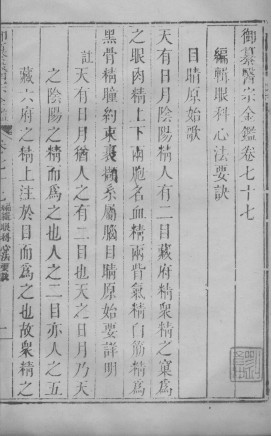 御纂醫宗金鑑卷七十七
編輯眼科心法要訣
目睛原始歌
天有日月陰陽精人有二目藏府精衆精之窠爲
之眼肉精上下兩胞名血精兩眥氣精白筋精爲
黑骨精瞳約束裹擷系屬腦目睛原始要詳明
註天有日月猶人之有二目也天之日月乃天
之陰陽之精而爲之也人之二目亦人之五
藏六府之精上注於目而爲之也故衆精之
編輯眼科心法要訣
一